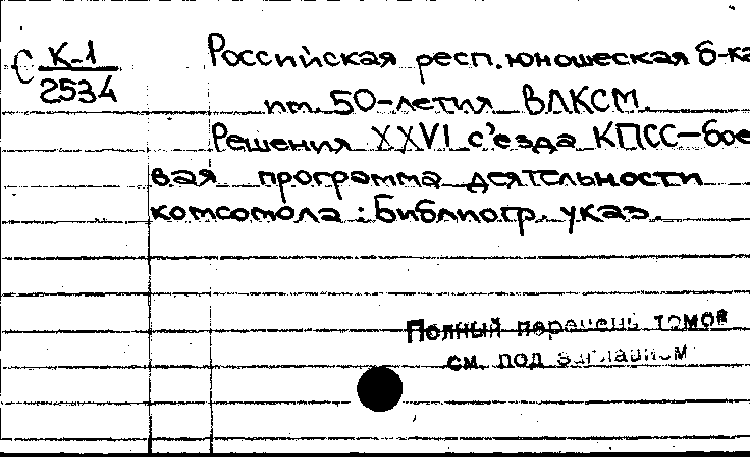 С К-1
2534
Российская респ. юношеская б-ка
им. 50-летия ВЛКСМ.
Решения XXVI с'езда КПСС - бое
вая программа деятельности
комсомола : Библиогр. указ.
Полный перечень томов
см. под заглавием